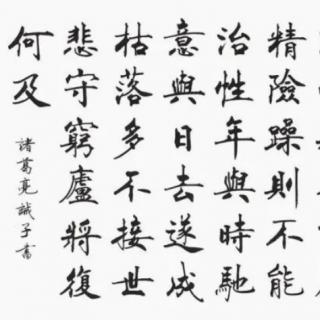 精險躁則不能
治性年與時馳
意與日去遂成
枯落多不接世
悲守窮廬將復
何及
諸葛亮誡子書